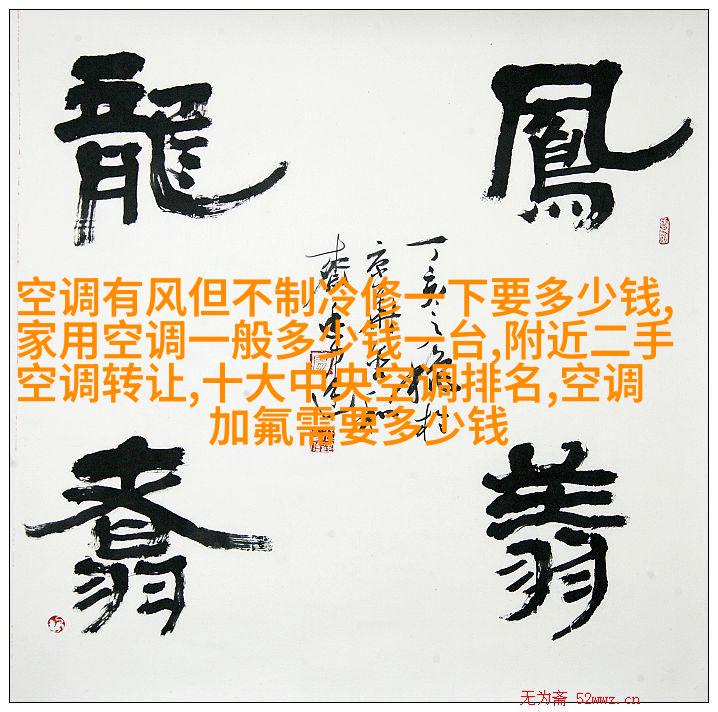 鳳翔
龍翥
丁亥之
空调有风但不制冷修一下要多少钱,
家用空调一般多少钱一台,附近二手
空调转让,十大中央空调排名,空调
加氟需要多少钱
无为斋 52wwz.cn